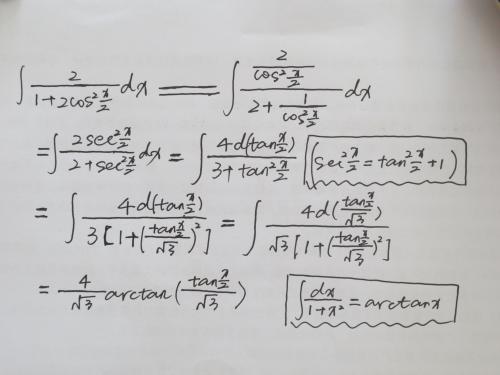 ∫ 2/(1+2cos² x/2) dx = ∫ (2/(cos² x/2))/(2+1/(cos² x/2)) dx
= ∫ (2sec² x/2)/(2+sec² x/2) dx = ∫ 4d(tan x/2)/(3+tan² x/2) (sec² x/2 = tan² x/2 + 1)
= ∫ 4d(tan x/2)/(3[1+((tan x/2)/√3)²]) = ∫ 4d((tan x/2)/√3)/(√3[1+((tan x/2)/√3)²])
= 4/√3 arctan((tan x/2)/√3) ∫ dx/(1+x²) = arctanx